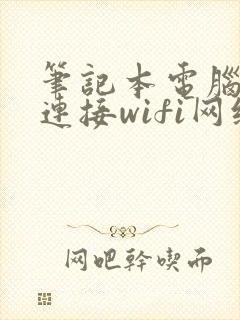 筆記本電腦
連接wifi网络
网吧幹喫而